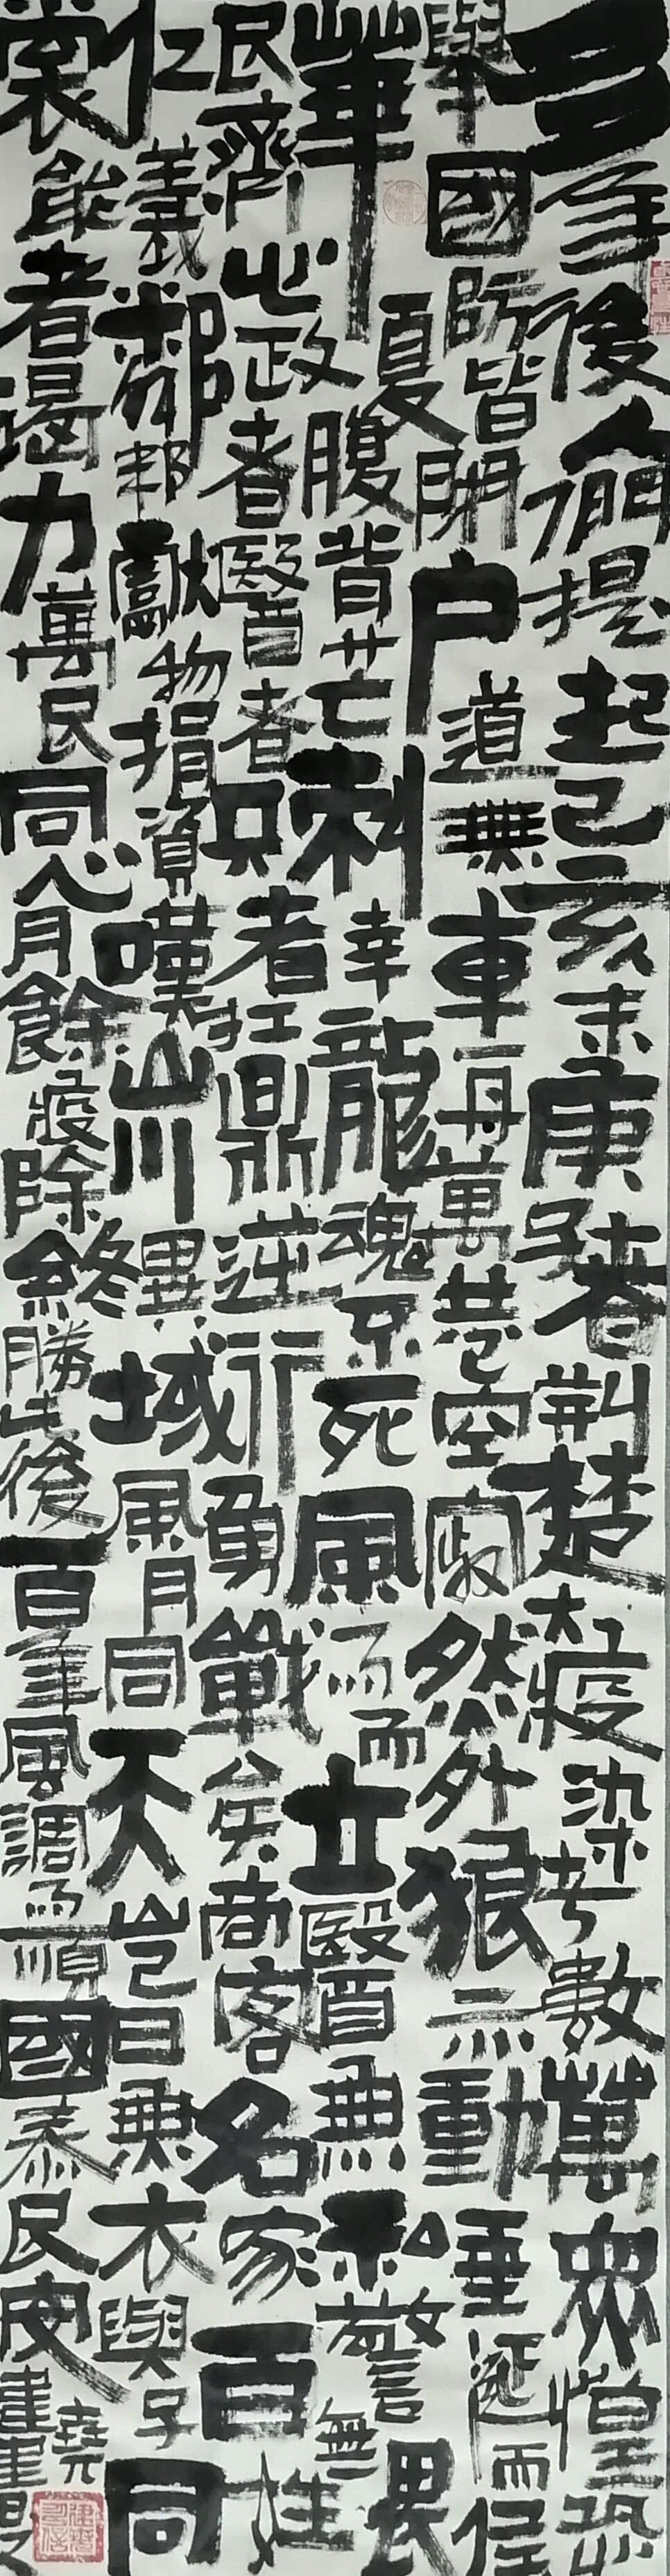 多年後人們提起己亥末庚子春荊楚大疫染者數萬眾惶恐
舉國防皆閉戶道無車舟萬巷空寂然外狼亦動垂涎而候
華夏腹背芒刺幸龍魂不死風雨而立醫無私警無畏
民齊心政者醫者兵者扛鼎逆行勇戰矣商客名家百姓
仁義鄰邦獻物捐資嘆山川異域風月同天豈曰無衣與子同
裳能者竭力萬民同心月餘疫除終勝此後百年風調雨順國泰民安